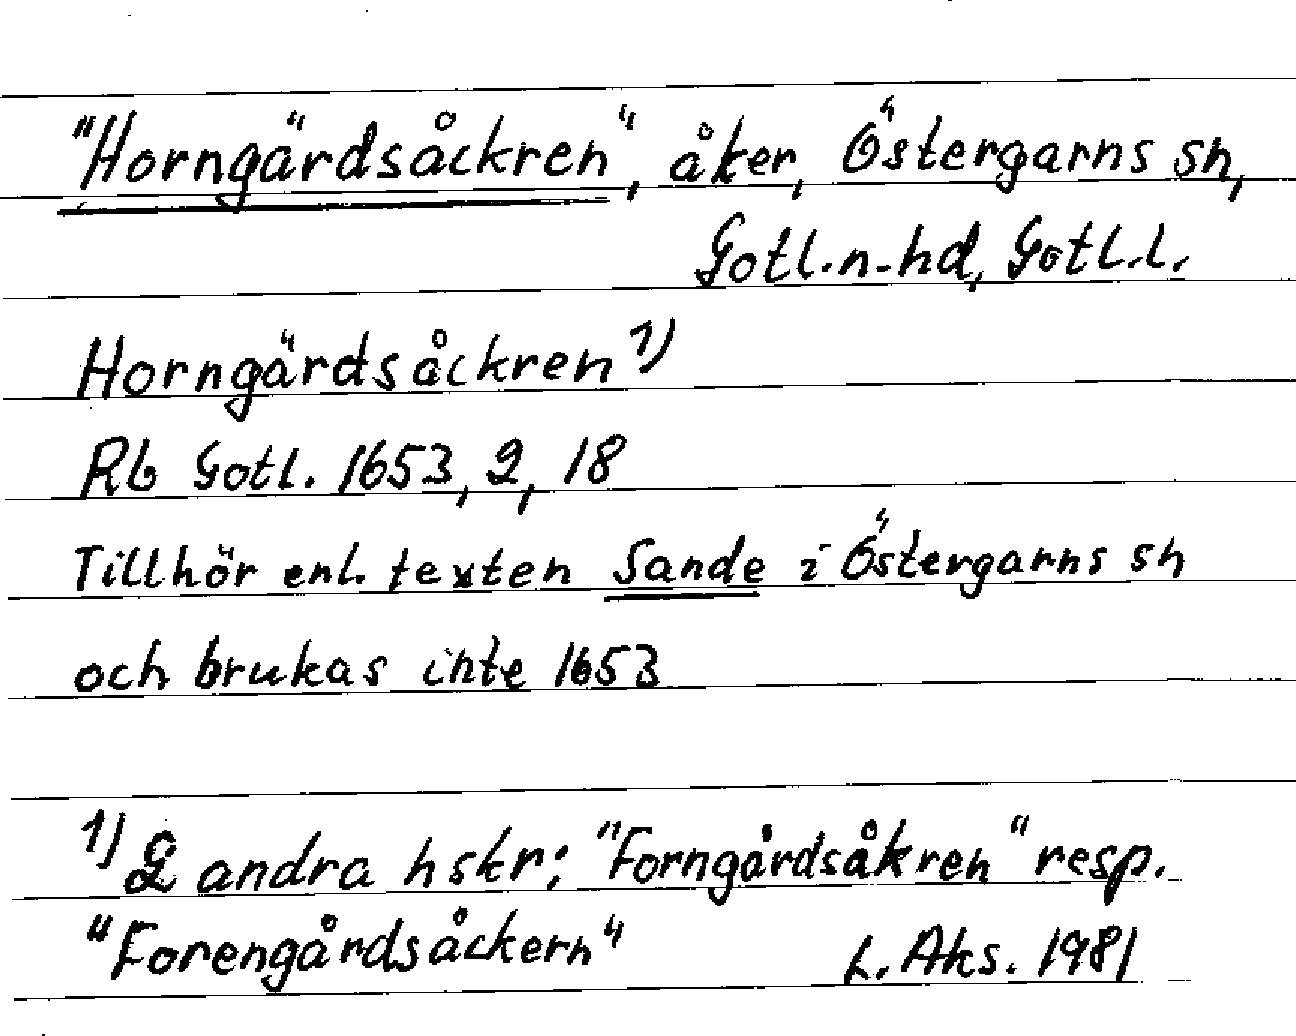 "Horngärdsåckren", åker, Östergarns sn,
Gotl.n.hd, Gotl.l.
Horngärdsåckren 1)
Rb Gotl. 1653, 2, 18
Tillhör enl. texten Sande i Östergarns sn
och brukas inte 1653
1) 2 andra hskr; "Forngårdsåkren" resp.
"Forengårdsåckern" L. Aks. 1981